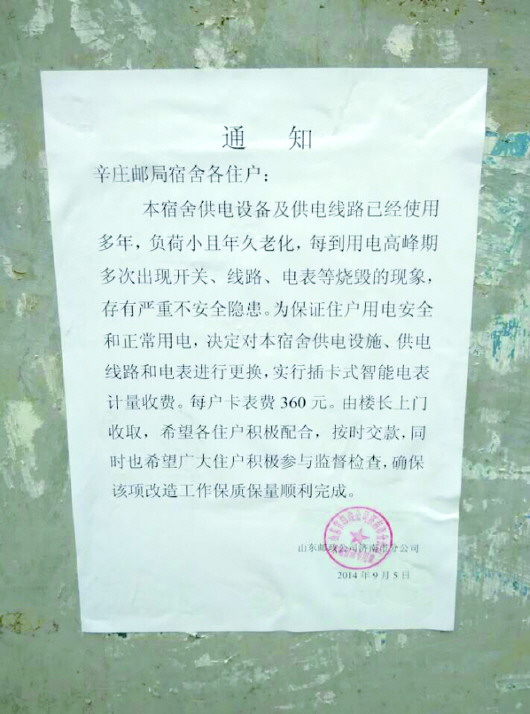 通 知
辛庄邮局宿舍各住户：
本宿舍供电设备及供电线路已经使用
多年，负荷小且年久老化，每到用电高峰期
多次出现开关、线路、电表等烧毁的现象，
存有严重不安全隐患。为保证住户用电安全
和正常用电，决定对本宿舍供电设施、供电
线路和电表进行更换，实行插卡式智能电表
计量收费。每户卡表费 360 元。由楼长上门
收取，希望各住户积极配合，按时交款，同
时也希望广大住户积极参与监督检查，确保
该项改造工作保质保量顺利完成。
山东邮政公司济南市分公司
2014 年 9 月 5 日